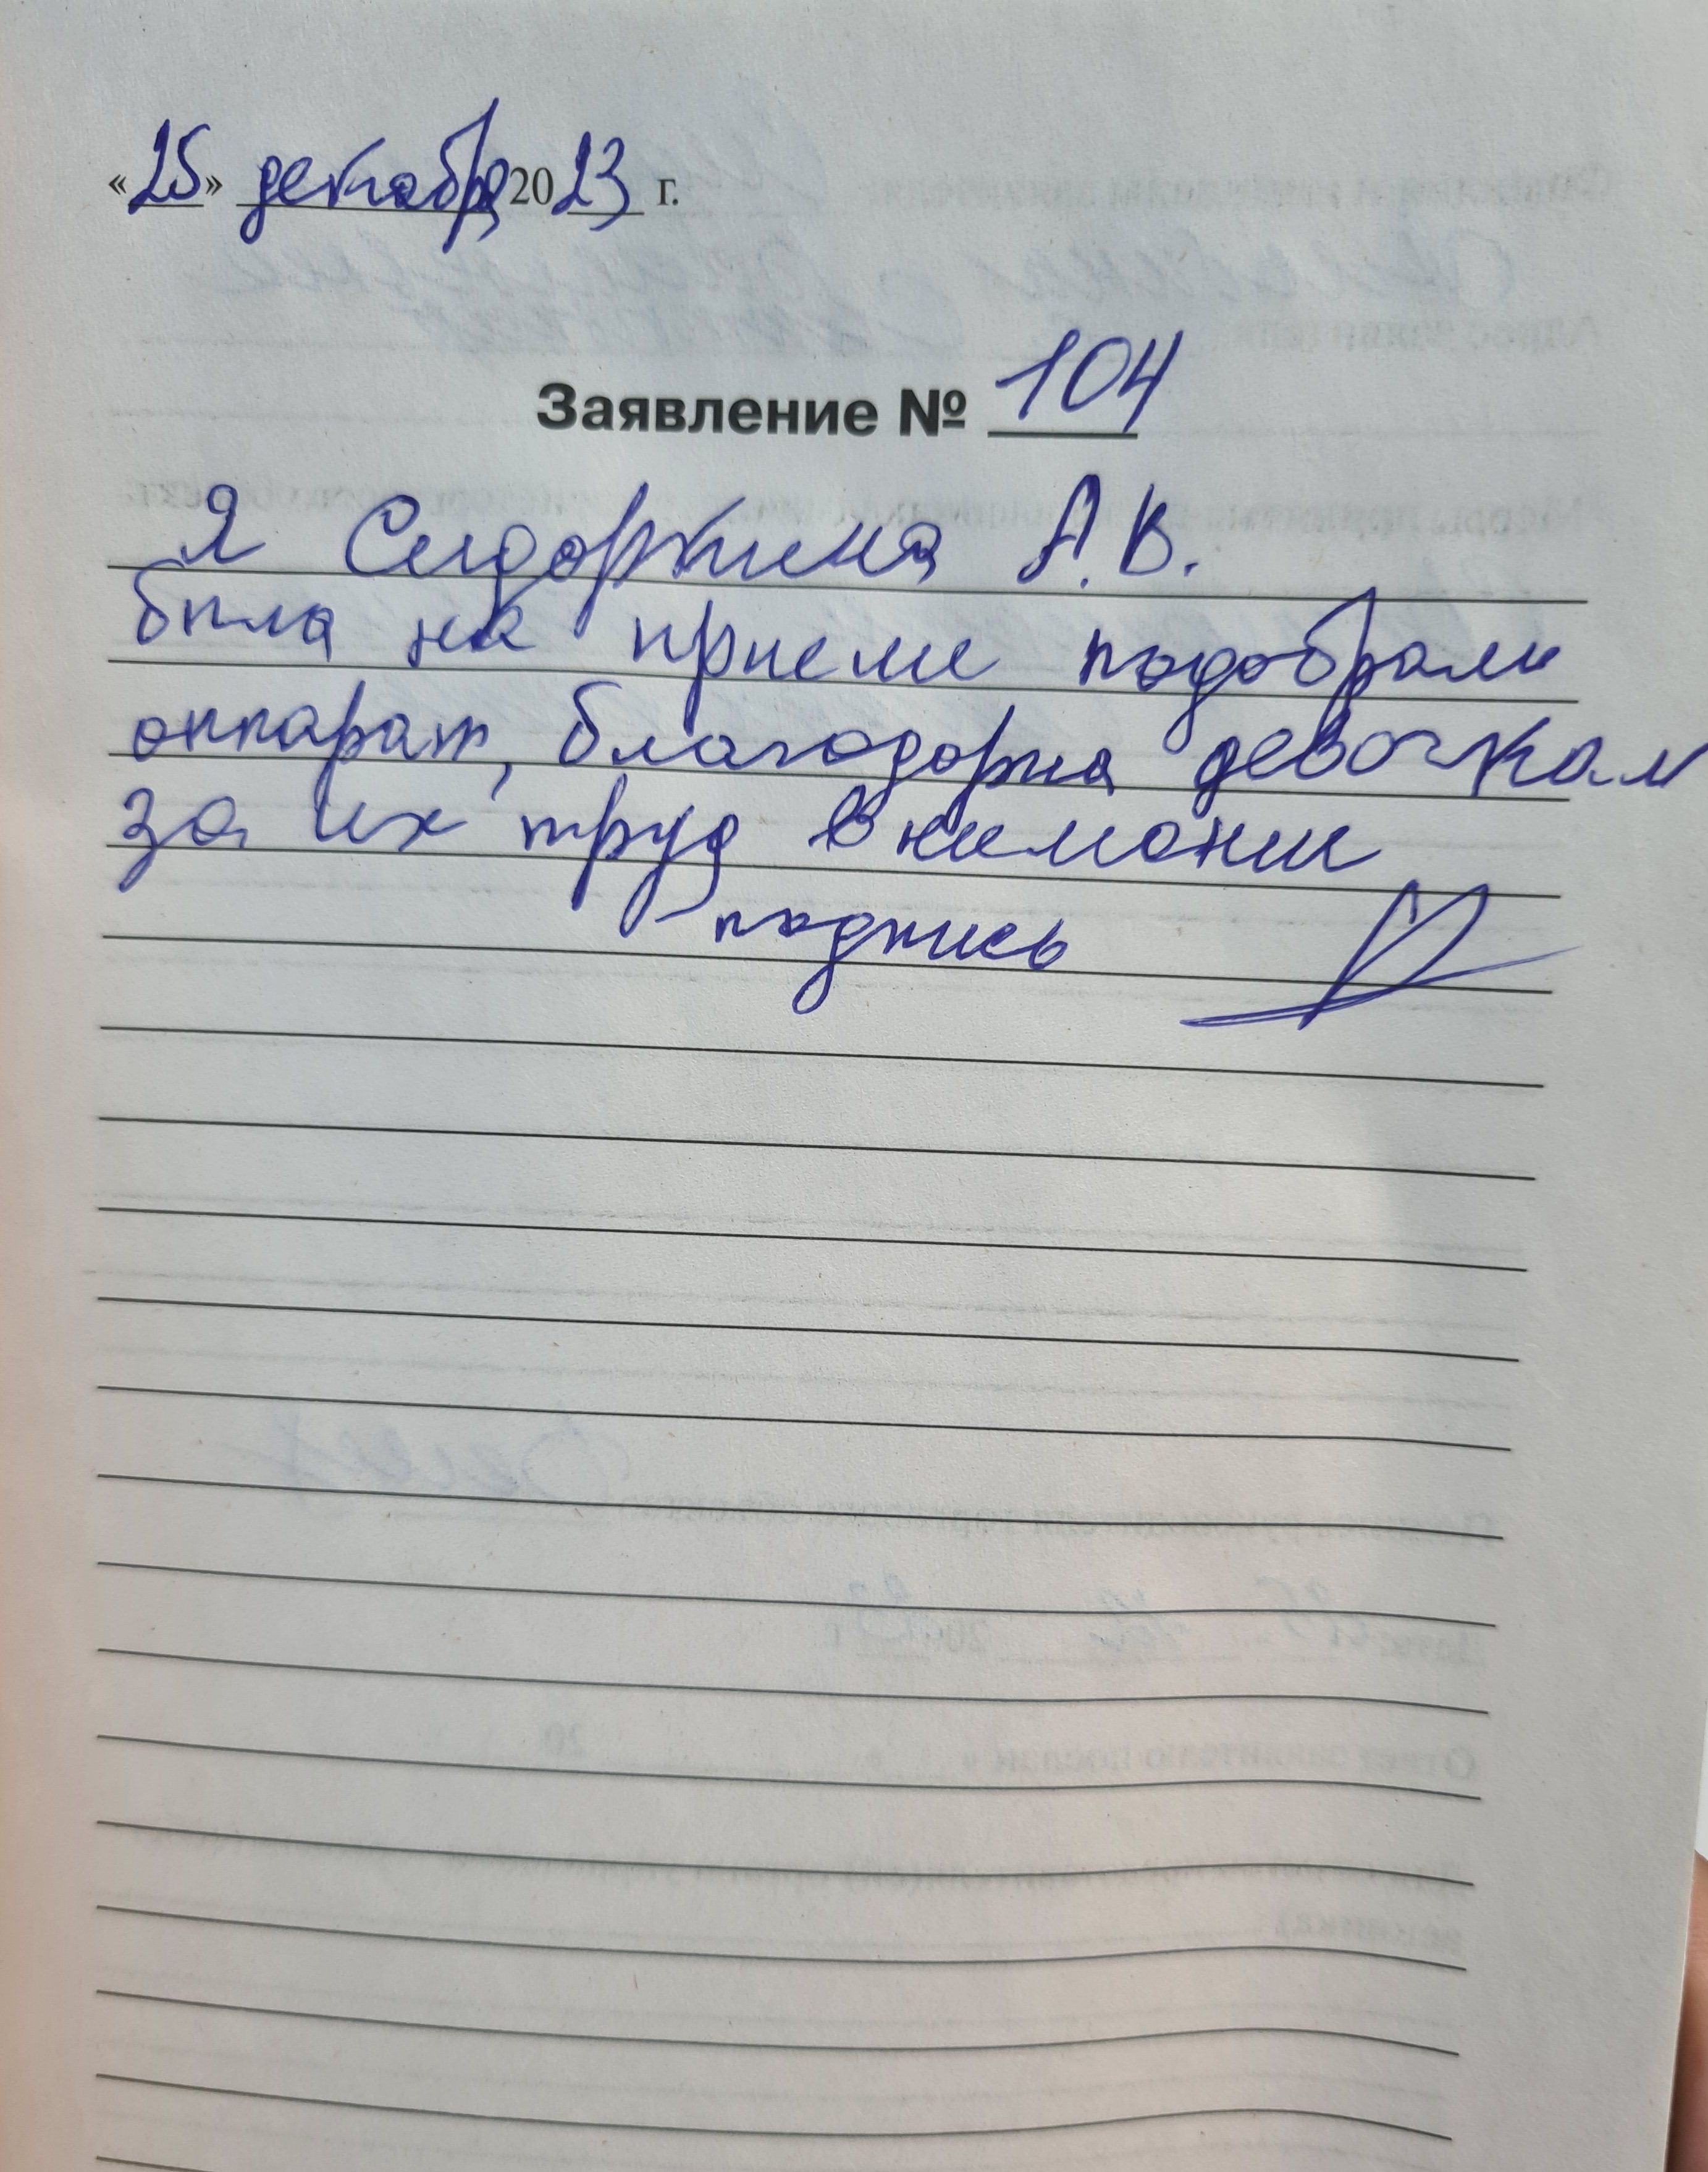 «25» декабря 2023 г.
Заявление № 104
Я Сидоркина А.В.
была на приеме подобрали
аппарат, благодарна девочкам
за их труд внимание
подпись